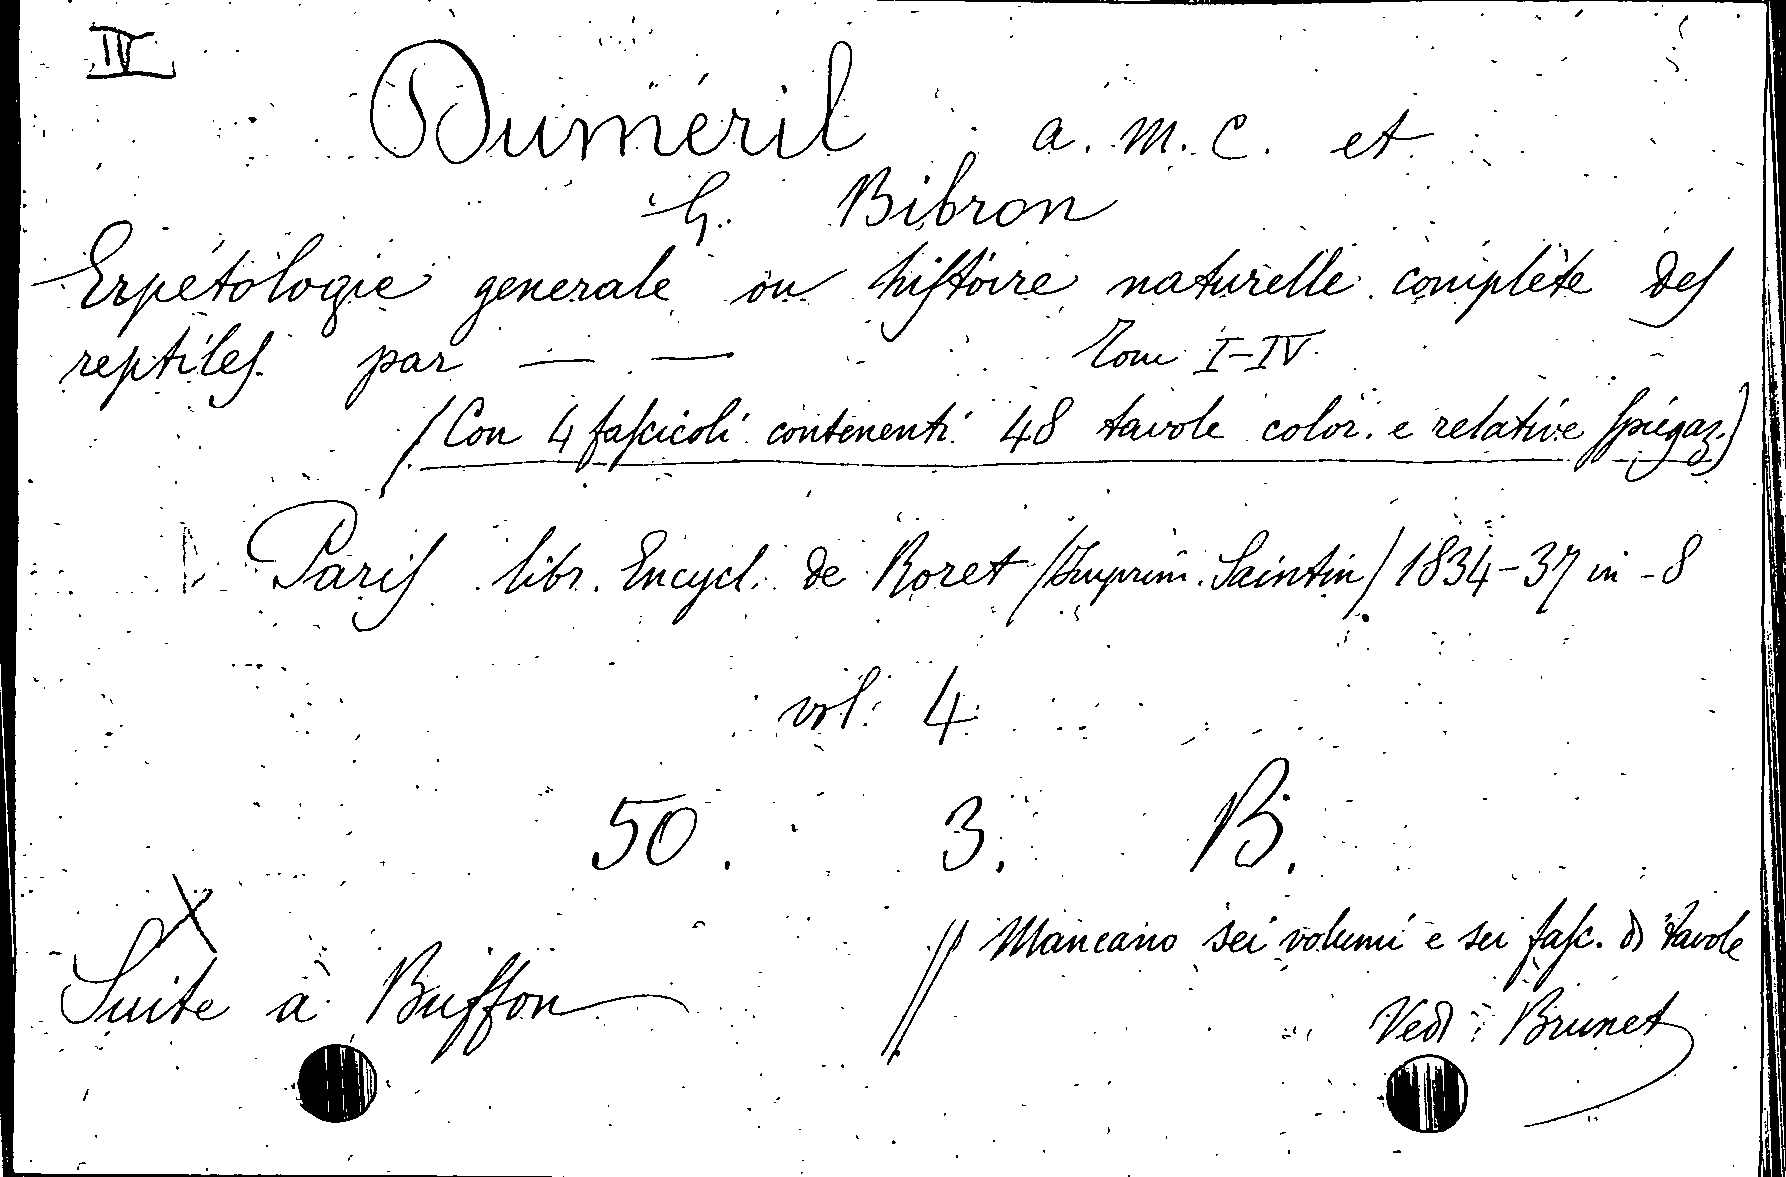 IV
Duméril a. m. C. et
G. Bibron
Erpétologie generale ou histoire naturelle complète des
reptiles par — — Tom I-IV
(Con 4 fascicoli contenenti 48 tavole color. e relative spiegaz.)
Paris libr. Encycl. de Roret (Imprim. Saintin) 1834-37 in-8
vol. 4
50. 3. B.
X
Suite à Buffon
// Mancano sei volumi e sei fasc. di tavole
Vedi Brunet